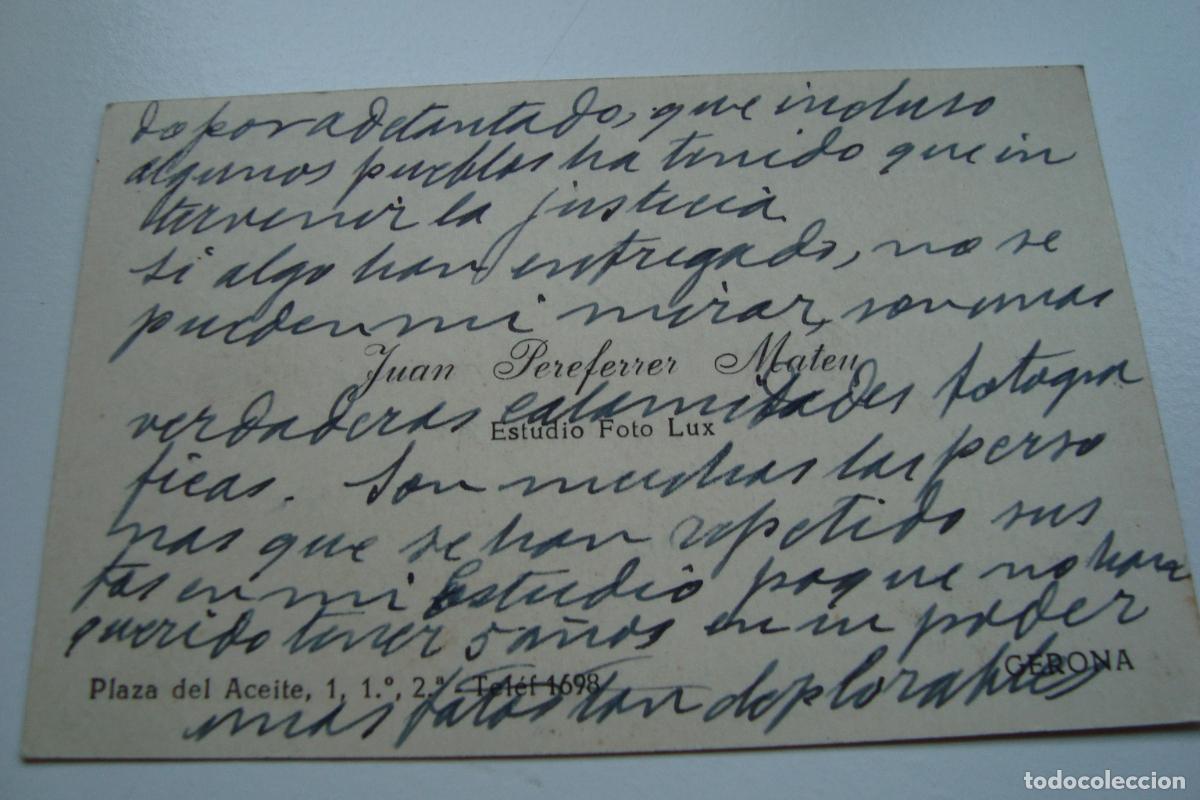 do por adetantado, que incluso
algunos pueblos ha tenido que in
tervenir la justicia
si algo han entregado, no se
pueden mi mirar, son unas
Juan Pereferrer Mateu
verdaderas calamidades fotogra
Estudio Foto Lux
ficas. Son muchas las perso
nas que se han repetido sus
tas en mi Estudio poque no han
querido tener 5 años en su poder
GERONA
Plaza del Aceite, 1, 1.º, 2.ª - Teléf 1698
unas fatos tan deplorables
todocoleccion